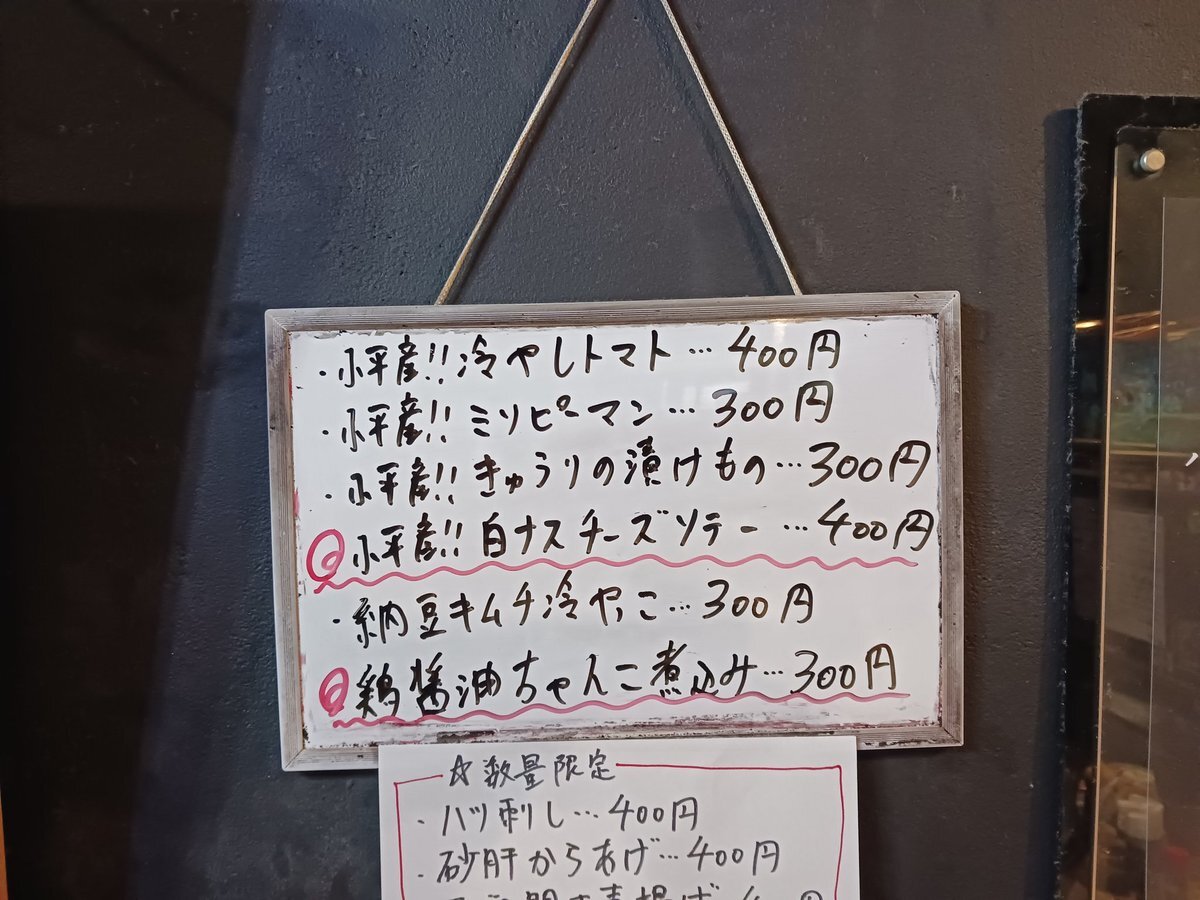 ・小平産!!冷やしトマト…400円
・小平産!!ミソピーマン…300円
・小平産!!きゅうりの漬けもの…300円
小平産!!白ナスチーズソテー…400円
・納豆キムチ冷やっこ…300円
鶏醤油ちゃんこ煮込み…300円
☆数量限定
・ハツ刺し…400円
・砂肝からあげ…400円